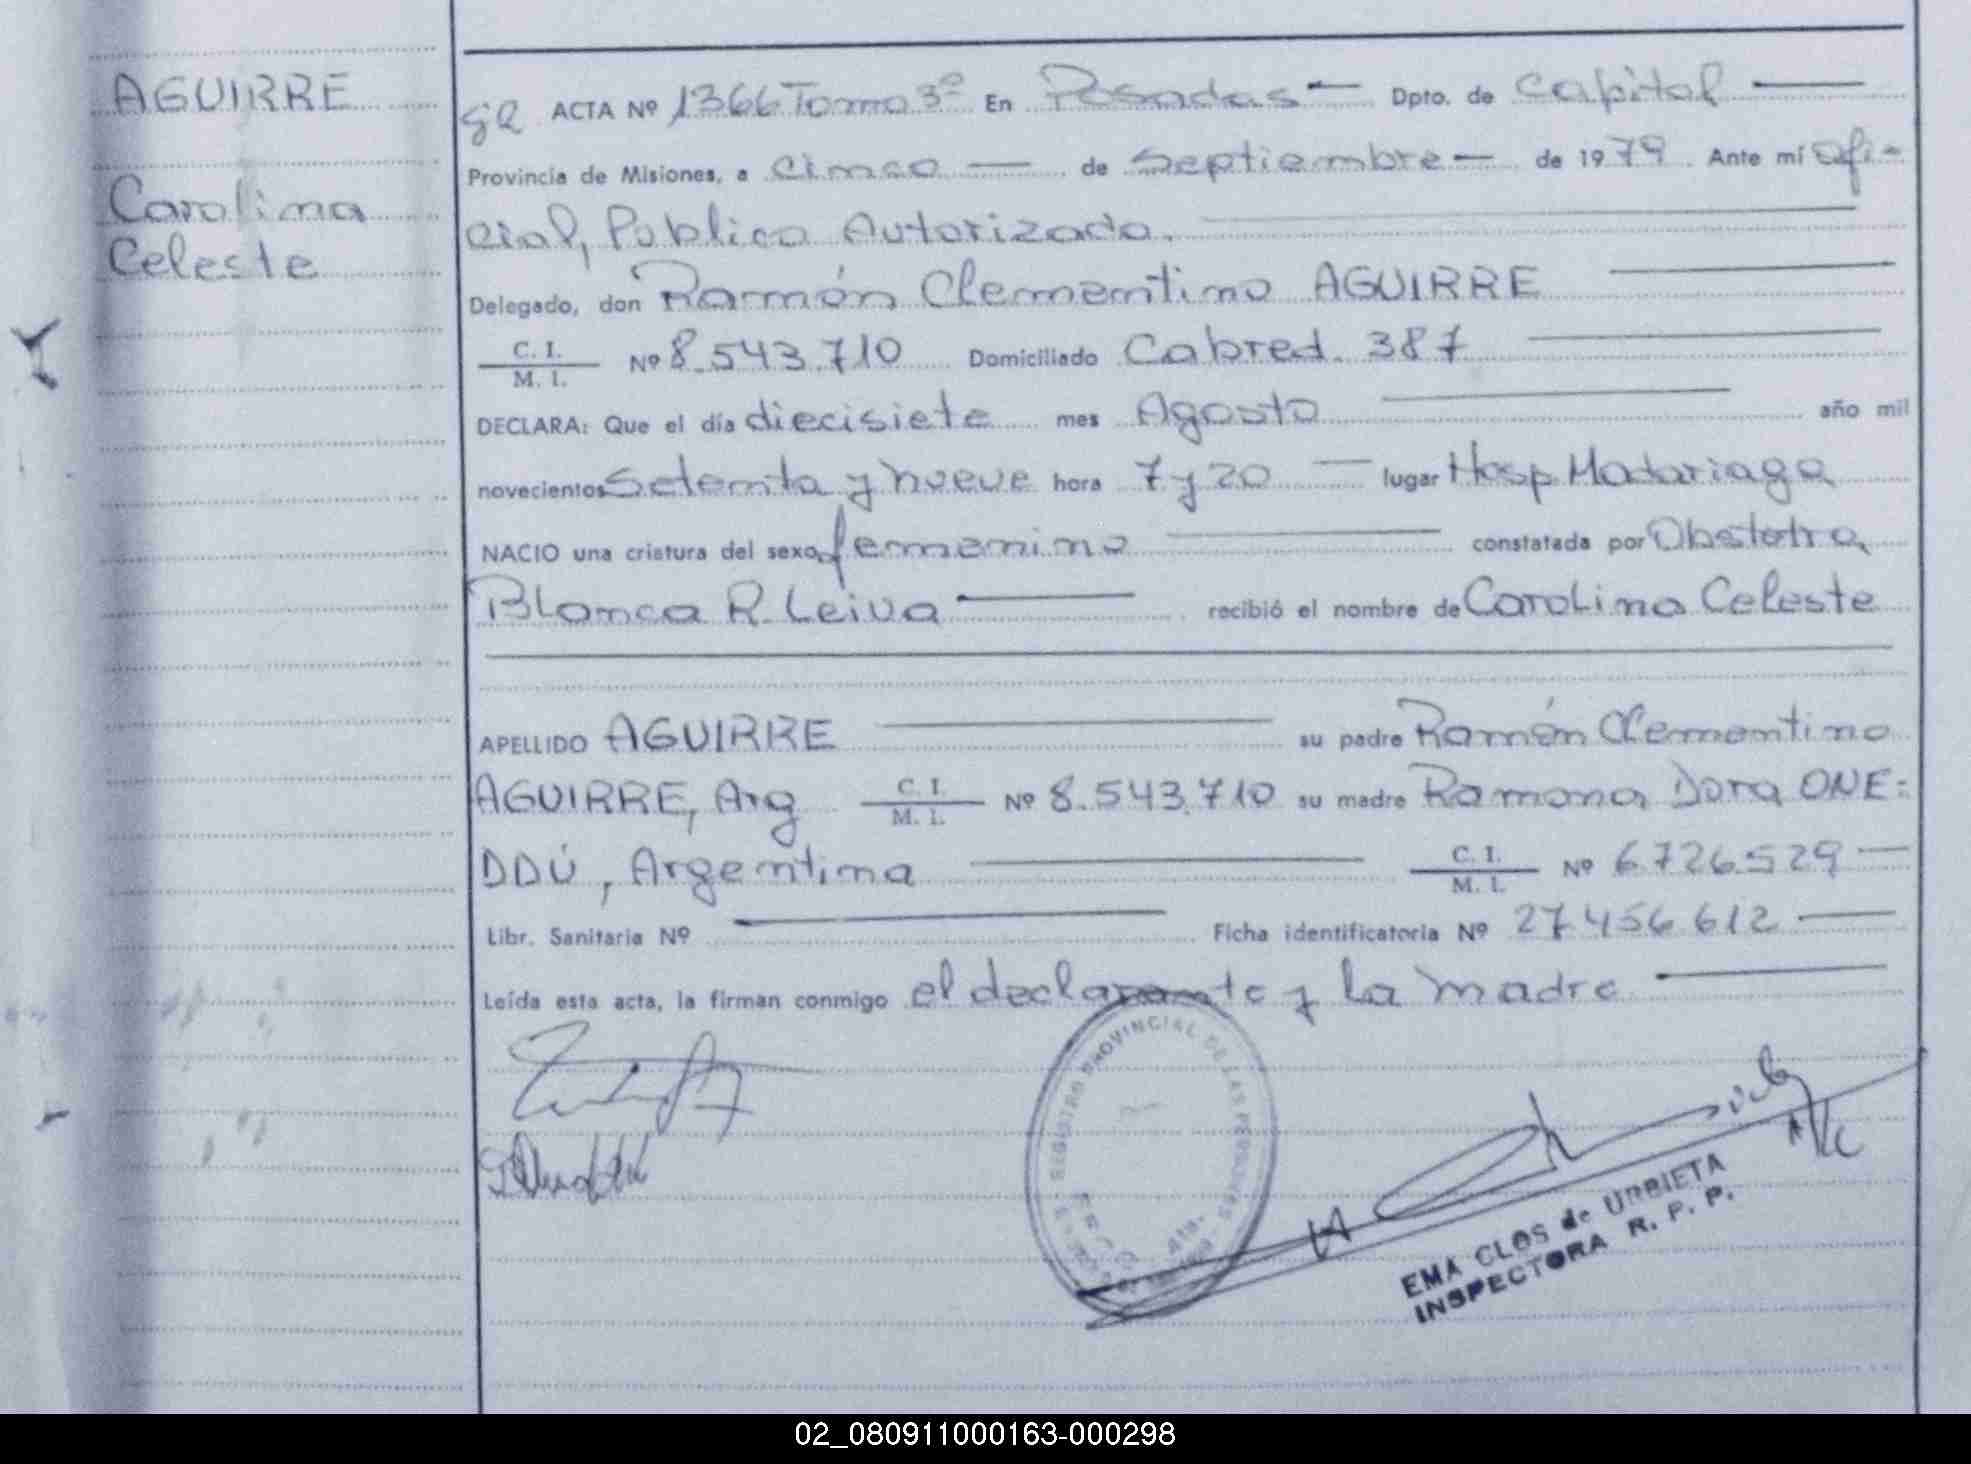 AGUIRRE
Carolina
Celeste
ACTA Nº 1366 Tomo 3º En Posadas — Dpto. de Capital —
Provincia de Misiones, a cinco — de Septiembre — de 1979 Ante mí Ofi-
cial, Publico Autorizado.
Delegado, don Ramón Clementino AGUIRRE
C. I. / M. I. Nº 8.543.710 Domiciliado Cabred 387
DECLARA: Que el día diecisiete mes Agosto año mil
novecientos Setenta y nueve hora 7 y 20 — lugar Hosp Madariaga
NACIO una criatura del sexo femenino constatada por Obstetra
Blanca R. Leiva recibió el nombre de Carolina Celeste
APELLIDO AGUIRRE su padre Ramón Clementino
AGUIRRE, Arg C. I. / M. I. Nº 8.543.710 su madre Ramona Dora ONE=
DDÚ, Argentina C. I. / M. I. Nº 6.726.529 —
Libr. Sanitaria Nº — Ficha identificatoria Nº 27.456.612 —
Leída esta acta, la firman conmigo el declarante y la madre
REGISTRO PROVINCIAL DE LAS PERSONAS
EMA CLOS de URBIETA
INSPECTORA R. P. P.
02_080911000163-000298